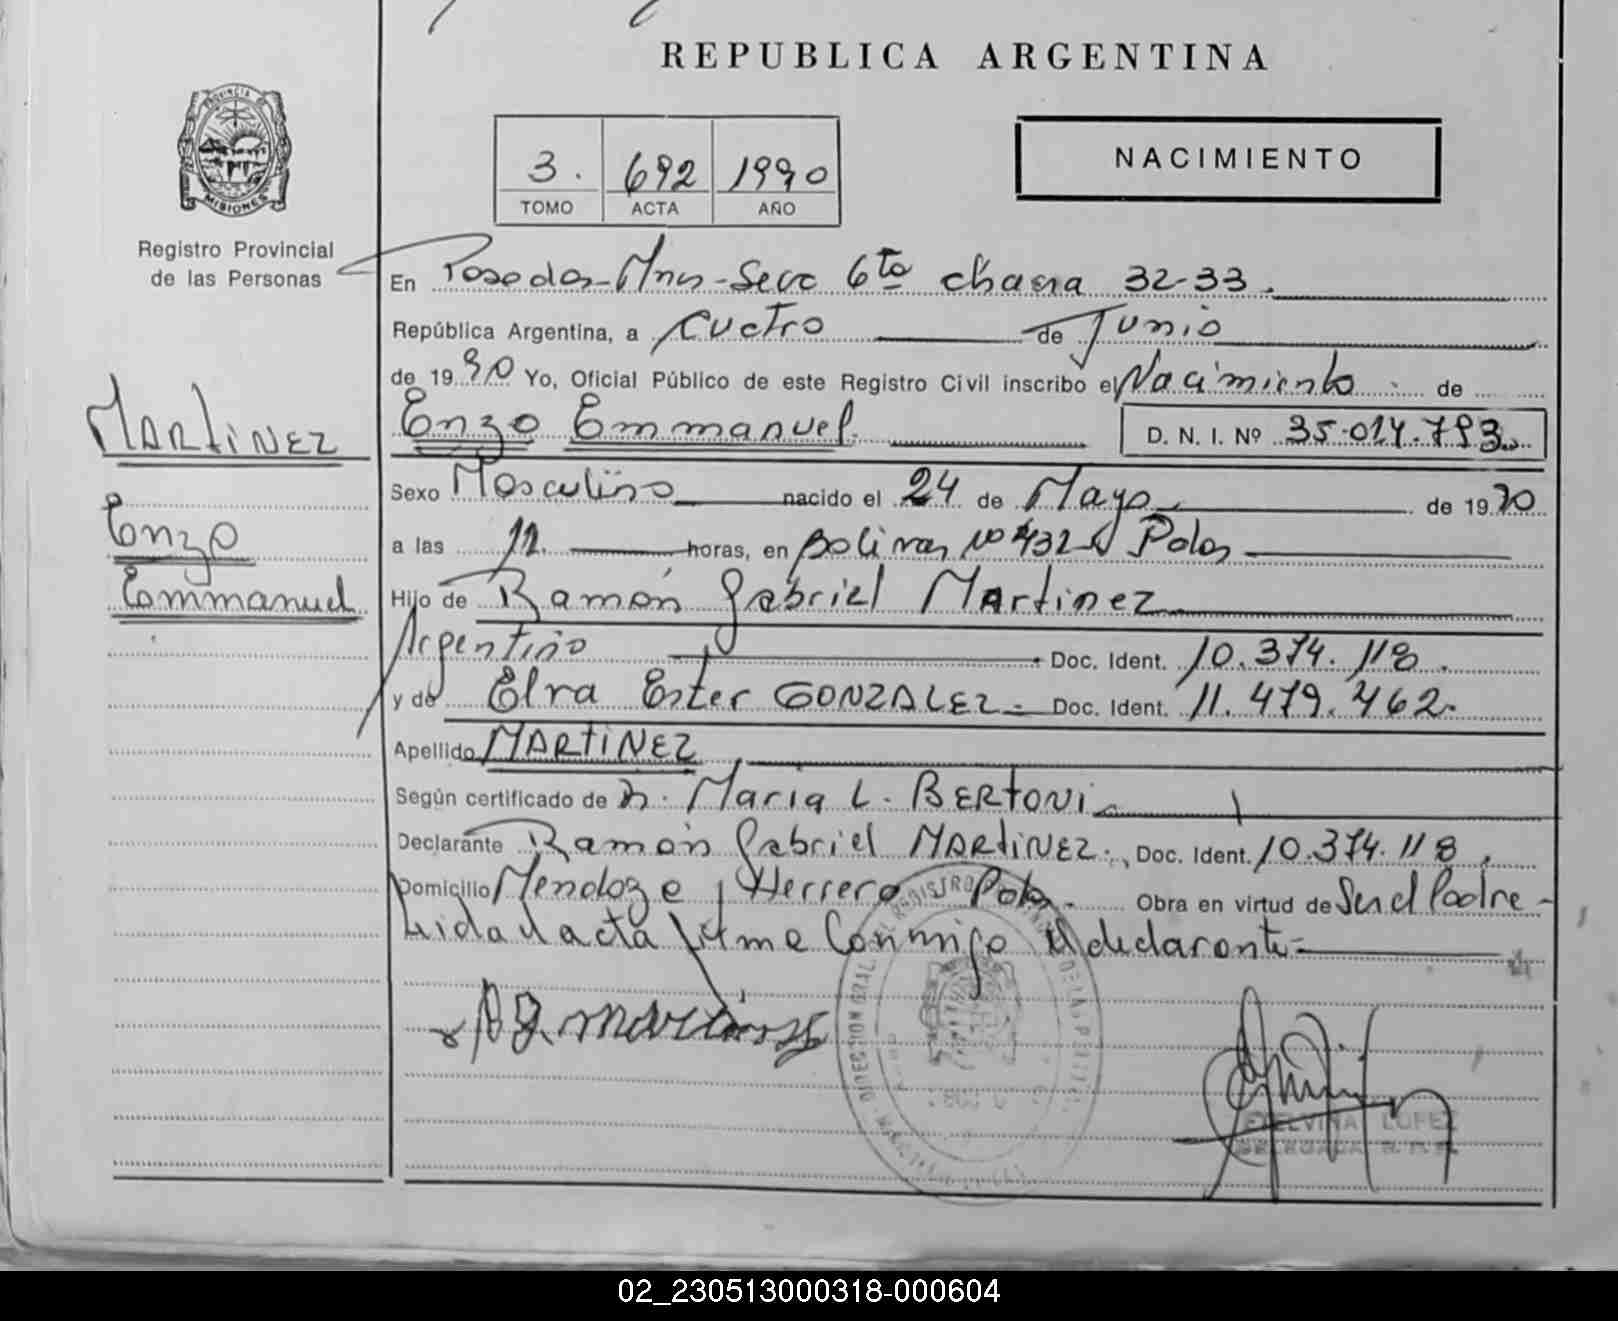 REPUBLICA ARGENTINA
PROVINCIA DE
MISIONES
Registro Provincial
de las Personas
3. 692 1990
TOMO ACTA AÑO
NACIMIENTO
En Posadas-Mnes-Secc 6ta chacra 32-33.
República Argentina, a Cuatro de Junio
de 1990 Yo, Oficial Público de este Registro Civil inscribo el Nacimiento de
MARTINEZ
Enzo Emmanuel. D. N. I. Nº 35.014.793
Sexo Masculino nacido el 24 de Mayo de 1990
Enzo
a las 12 horas, en Bolivar Nº 432 Pdas
Emmanuel
Hijo de Ramón Gabriel Martinez
Argentino Doc. Ident. 10.374.118.
y de Elva Ester GONZALEZ Doc. Ident. 11.479.462.
Apellido MARTINEZ
Según certificado de Dr. Maria L. BERTONI
Declarante Ramón Gabriel MARTINEZ Doc. Ident. 10.374.118.
Domicilio Mendoza y Herrera Pdas. Obra en virtud de Ser el Padre-
Leida el acta firma Conmigo el declarante
R G. Martinez
ETELVINA LOPEZ
DELEGADA R. P. P.
02_230513000318-000604